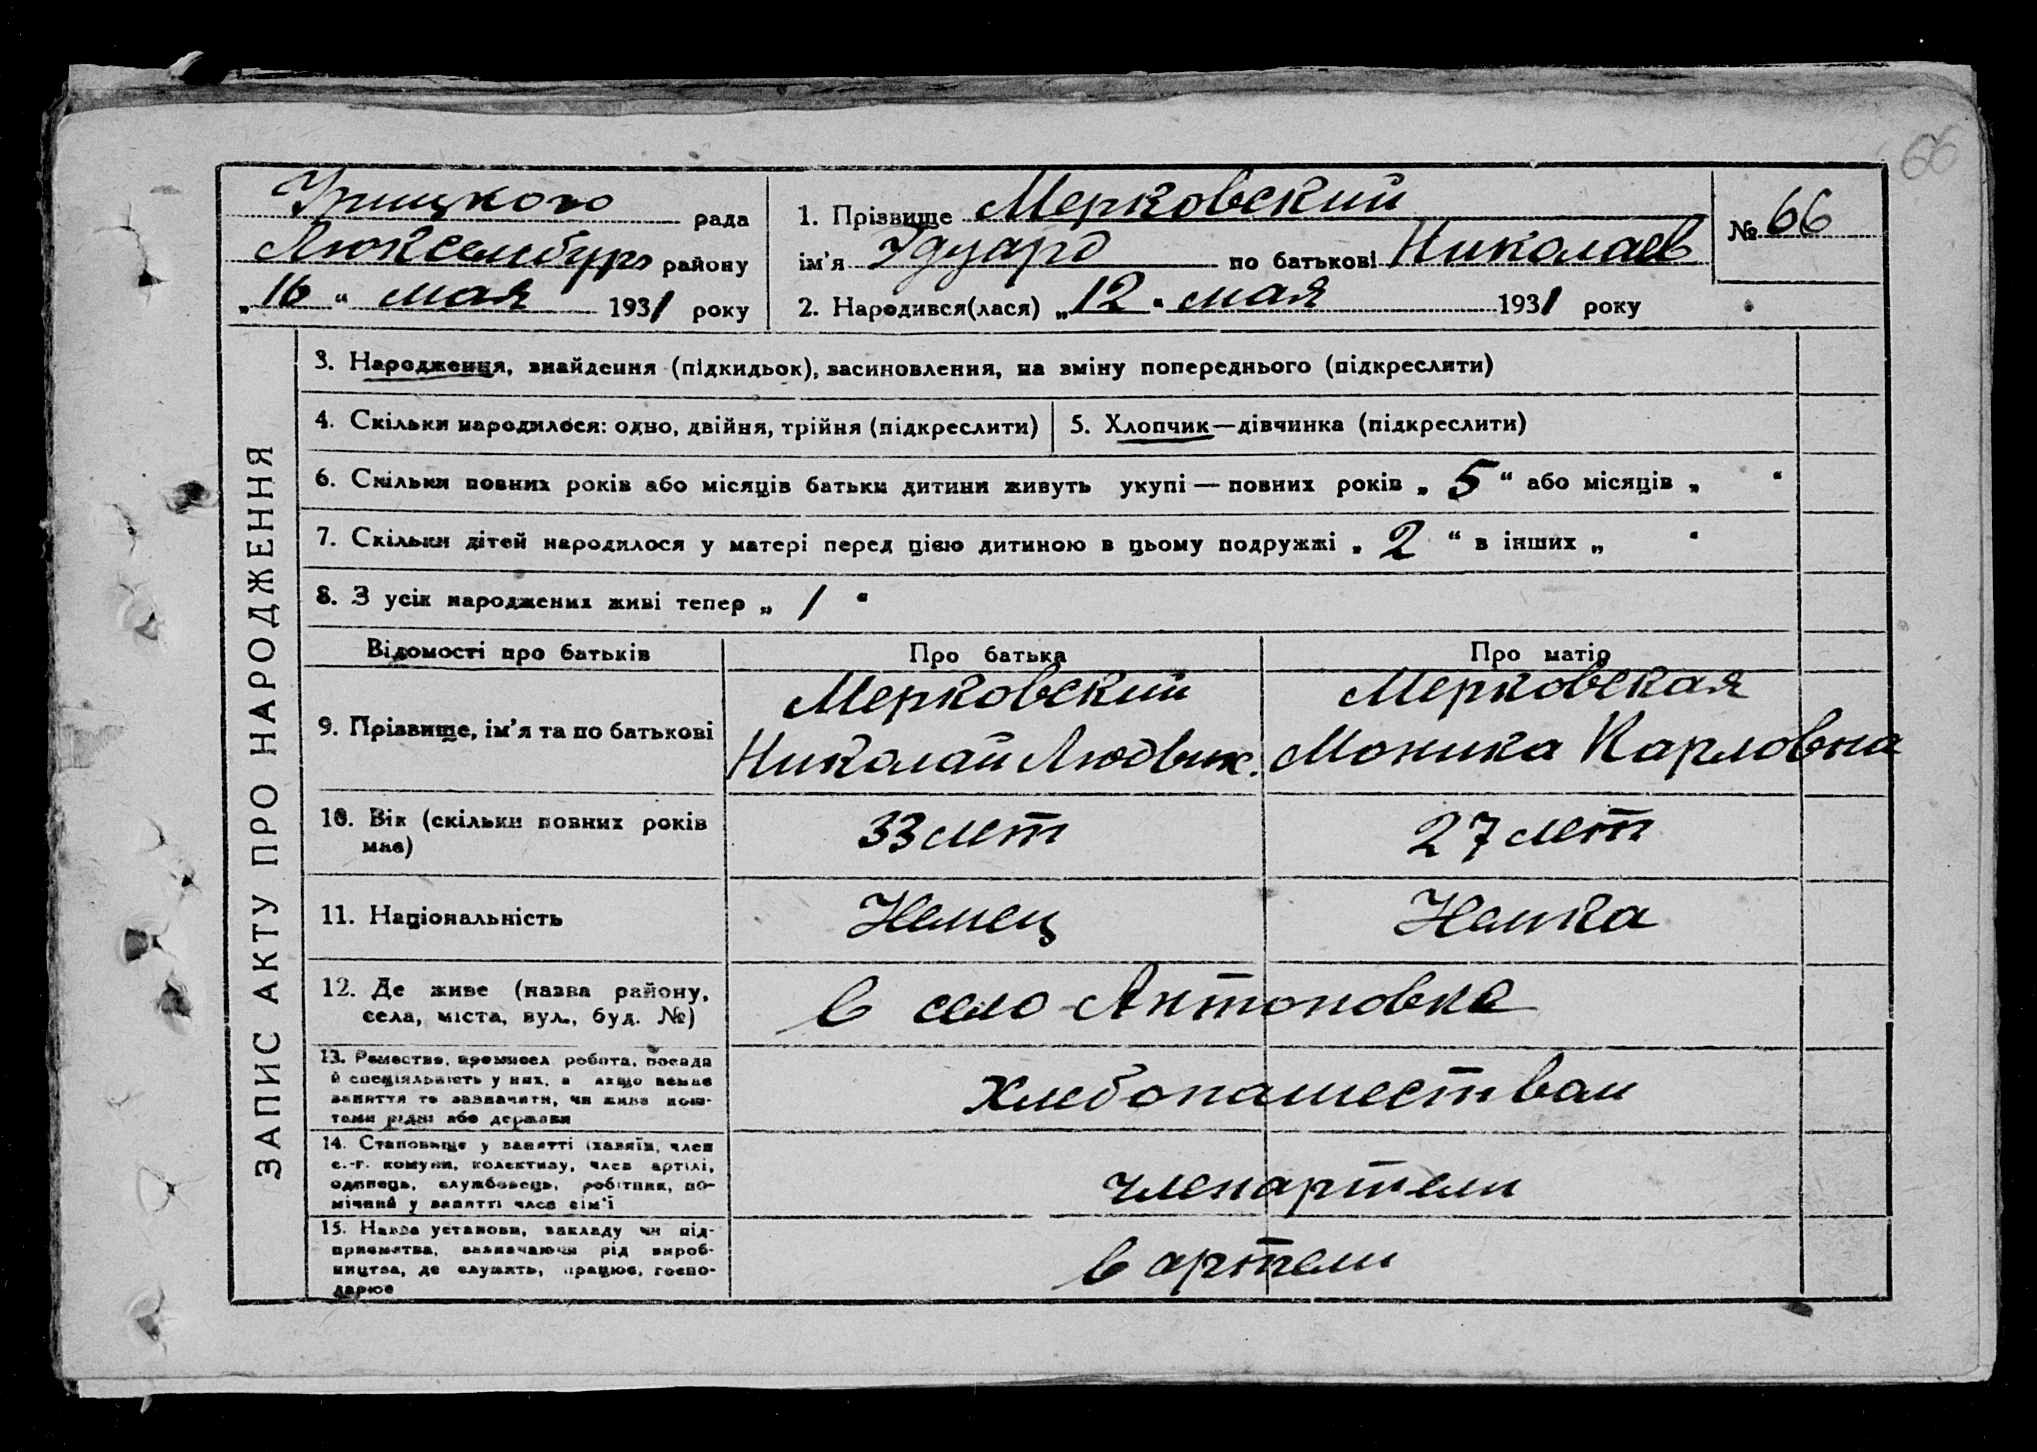 66
Урицкого рада
Люксембург району
„16“ мая 1931 року
1. Прізвище Мерковский
ім'я Эдуард по батькові Николаев
2. Народився(лася) „12“ мая 1931 року
№ 66
ЗАПИС АКТУ ПРО НАРОДЖЕННЯ
3. Народження, знайдення (підкидьок), засиновлення, на зміну попереднього (підкреслити)
4. Скільки народилося: одно, двійня, трійня (підкреслити)
5. Хлопчик—дівчинка (підкреслити)
6. Скільки повних років або місяців батьки дитини живуть укупі — повних років „5“ або місяців „ “
7. Скільки дітей народилося у матері перед цією дитиною в цьому подружжі „2“ в інших „ “
8. З усіх народжених живі тепер „1“
Відомості про батьків
Про батька
Про матір
9. Прізвище, ім'я та по батькові
Мерковский
Николай Людвик.
Мерковская
Моника Карловна
10. Вік (скільки повних років
має)
33 лет
27 лет
11. Національність
Немец
Немка
12. Де живе (назва району,
села, міста, вул., буд. №)
в село Антоновка
13. Ремество, промисел робота, посада
й спеціяльність у них, а якщо немає
заняття то зазначити, чи живе кош-
тами рідні або держави
Хлебопашеством
14. Становище у занятті (хазяїн, член
с.-г. комуни, колективу, член артілі,
одинець, службовець, робітник, по-
мічний у занятті член сім'ї
член артели
15. Назва установи, закладу чи під-
приємства, зазначаючи рід вироб-
ництва, де служить, працює, госпо-
дарює
в артели